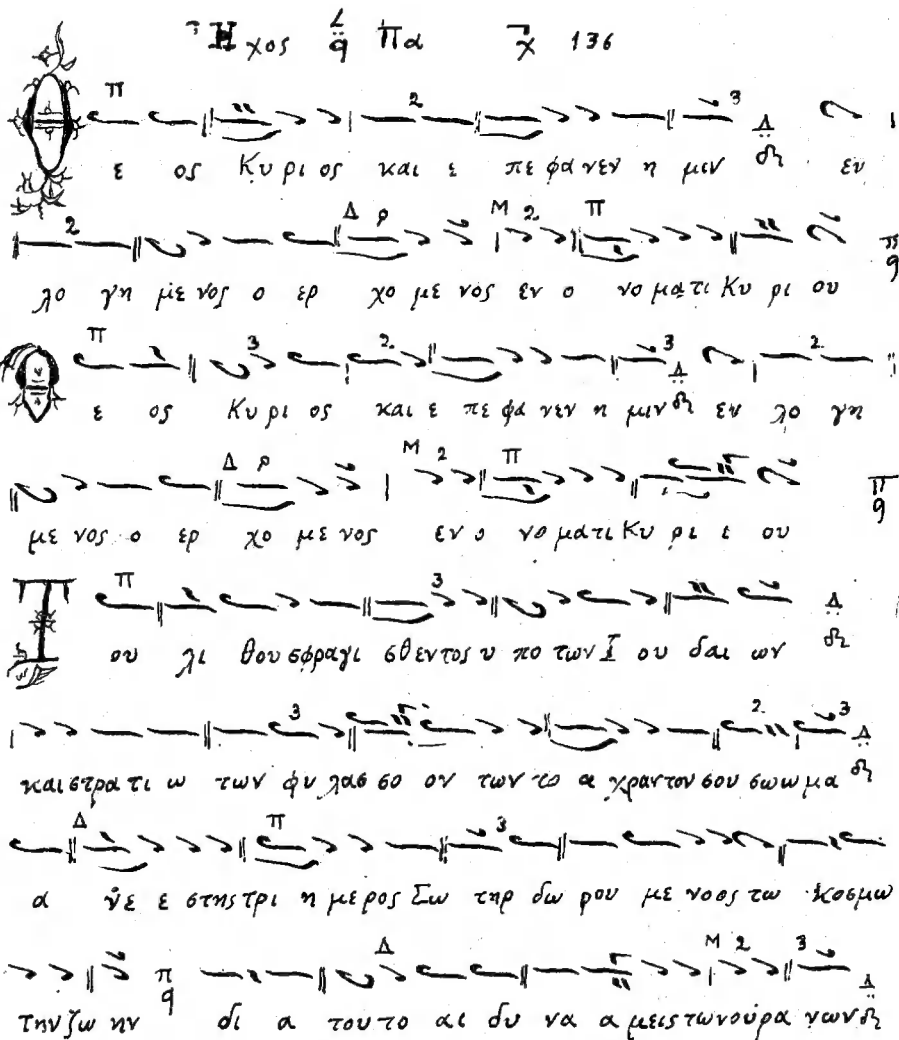 Ηχος Πα 136
ε ος Κυ ρι ος και ε πε φα νεν η μιν εν
λο γη με νος ο ερ χο με νος εν ο νο μα τι Κυ ρι ου
ε ος Κυ ρι ος και ε πε φα νεν η μιν εν λο γη
με νος ο ερ χο με νος εν ο νο μα τι Κυ ρι ι ου
Τ ου λι θου σφραγι σθεντος υ πο των Ι ου δαι ων
και στρα τι ω των φυ λασ σο ον των το α χραντον σου σωωμα
α νε ε στης τρι η μερος Σω τηρ δω ρου με νοος τω κοσμω
την ζω ην δι α τουτο αι δυ να α μεις των ουρα νων